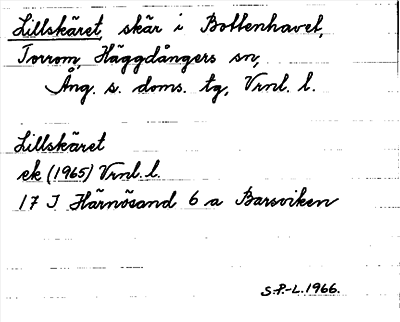 Lillskäret, skär i Bottenhavet,
Torrom, Häggdångers sn,
Ång. s. doms. tg, Vrnl. l.
Lillskäret
ek (1965) Vrnl. l.
17 I Härnösand 6 a Barsviken
S.P.-L. 1966.